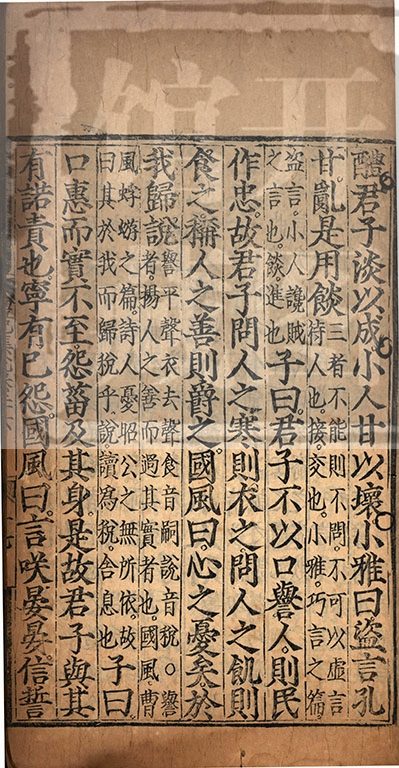 醴君子淡以成小人甘以壞小雅曰盜言孔
甘亂是用餤
三者不能則不問不可以虛言
待人也接交也小雅巧言之篇
盜言小人讒賊
之言也餤進也
子曰君子不以口譽人則民
作忠故君子問人之寒則衣之問人之飢則
食之稱人之善則爵之國風曰心之憂矣於
我歸說
譽平聲衣去聲食音嗣說音稅○譽
者揚人之善而過其實者也國風曹
風蜉蝣之篇詩人憂昭公之無所依故
曰其於我而歸稅乎說讀為稅舍息也
子曰
口惠而實不至怨菑及其身是故君子與其
有諾責也寧有已怨國風曰言咲晏晏信誓